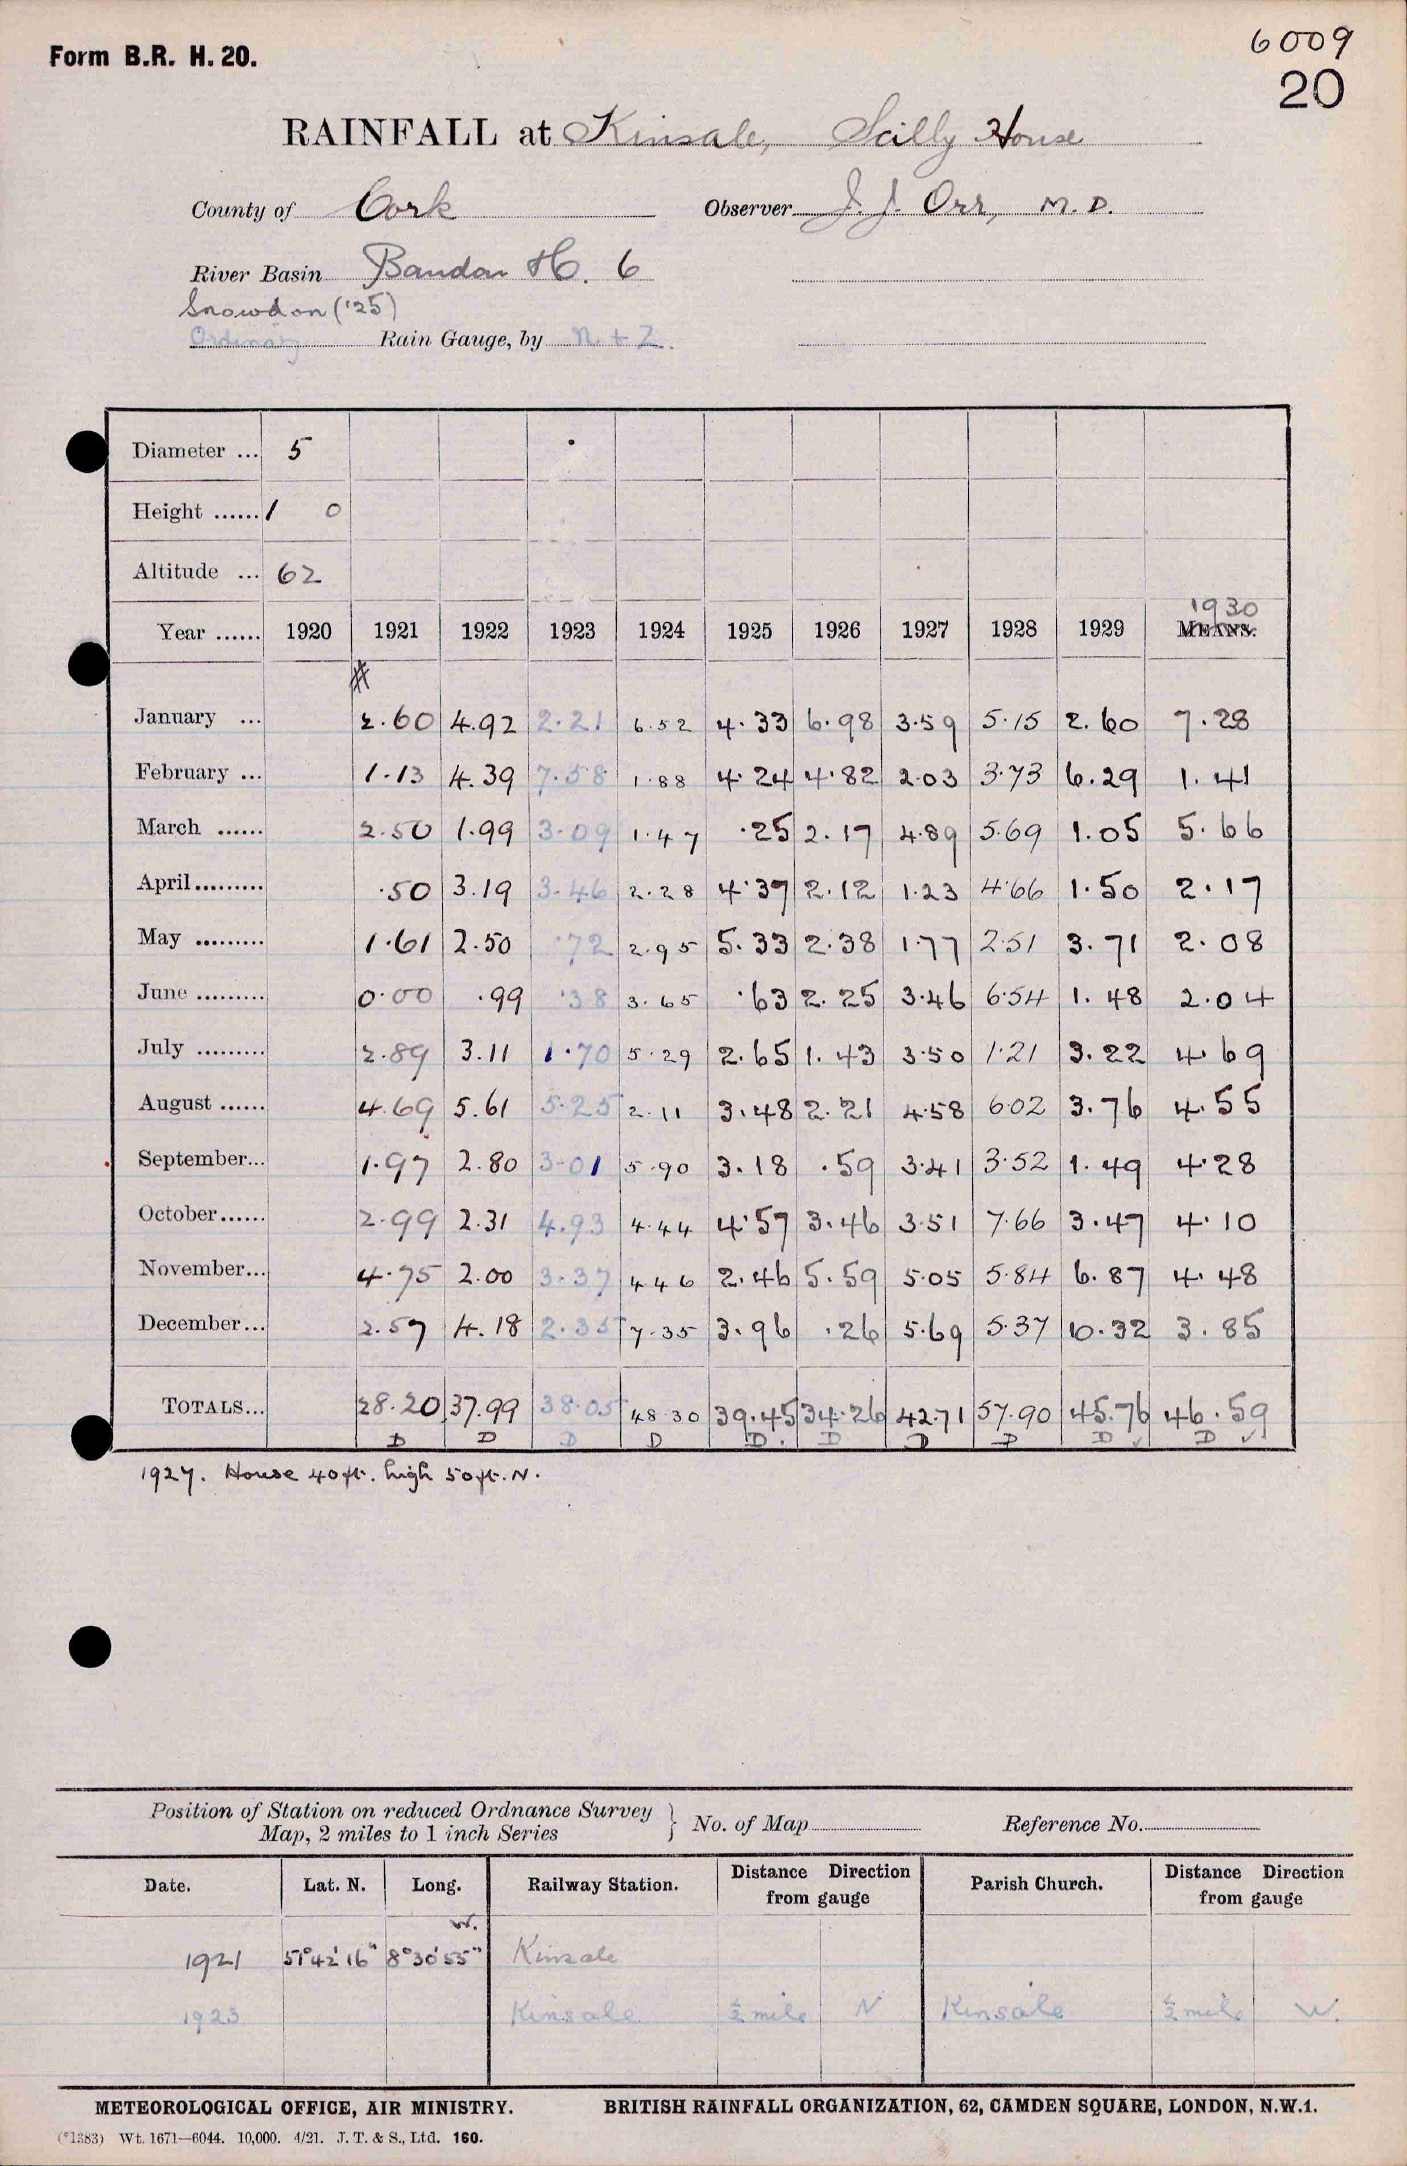 6009
Form B.R. H. 20.
20
RAINFALL at Kinsale, Scilly House
County of Cork Observer J. J. Orr, M.D.
River Basin Bandon H. 6
Snowdon ('25)
Ordinary Rain Gauge, by N + Z.
Diameter ... 5
Height ...... 1 0
Altitude ... 62
1930
Year ...... 1920 1921 1922 1923 1924 1925 1926 1927 1928 1929 MEANS.
#
January ... 2.60 4.92 2.21 6.52 4.33 6.98 3.59 5.15 2.60 7.28
February ... 1.13 4.39 7.58 1.88 4.24 4.82 2.03 3.73 6.29 1.41
March ...... 2.50 1.99 3.09 1.47 .25 2.17 4.89 5.69 1.05 5.66
April......... .50 3.19 3.46 2.28 4.37 2.12 1.23 4.66 1.50 2.17
May ......... 1.61 2.50 .72 2.95 5.33 2.38 1.77 2.51 3.71 2.08
June ......... 0.00 .99 .38 3.65 .63 2.25 3.46 6.54 1.48 2.04
July ......... 2.89 3.11 1.70 5.29 2.65 1.43 3.50 1.21 3.22 4.69
August ...... 4.69 5.61 5.25 2.11 3.48 2.21 4.58 6.02 3.76 4.55
September... 1.97 2.80 3.01 5.90 3.18 .59 3.41 3.52 1.49 4.28
October...... 2.99 2.31 4.93 4.44 4.57 3.46 3.51 7.66 3.47 4.10
November... 4.75 2.00 3.37 4 4 6 2.46 5.59 5.05 5.84 6.87 4.48
December... 2.57 4.18 2.35 7.35 3.96 .26 5.69 5.37 10.32 3.85
TOTALS... 28.20 37.99 38.05 48 30 39.45 34.26 42.71 57.90 45.76 46.59
D D D D D. D D D D ✓ D ✓
1927. House 40ft. high 50ft. N.
Position of Station on reduced Ordnance Survey
Map, 2 miles to 1 inch Series } No. of Map Reference No.
Date. Lat. N. Long. Railway Station. Distance Direction from gauge Parish Church. Distance Direction from gauge
W.
1921 51°42'16" 8°30'55" Kinsale
1923 Kinsale ½ mile N Kinsale ½ mile W.
METEOROLOGICAL OFFICE, AIR MINISTRY. BRITISH RAINFALL ORGANIZATION, 62, CAMDEN SQUARE, LONDON, N.W.1.
(*1383) Wt. 1671—6044. 10,000. 4/21. J. T. & S., Ltd. 160.